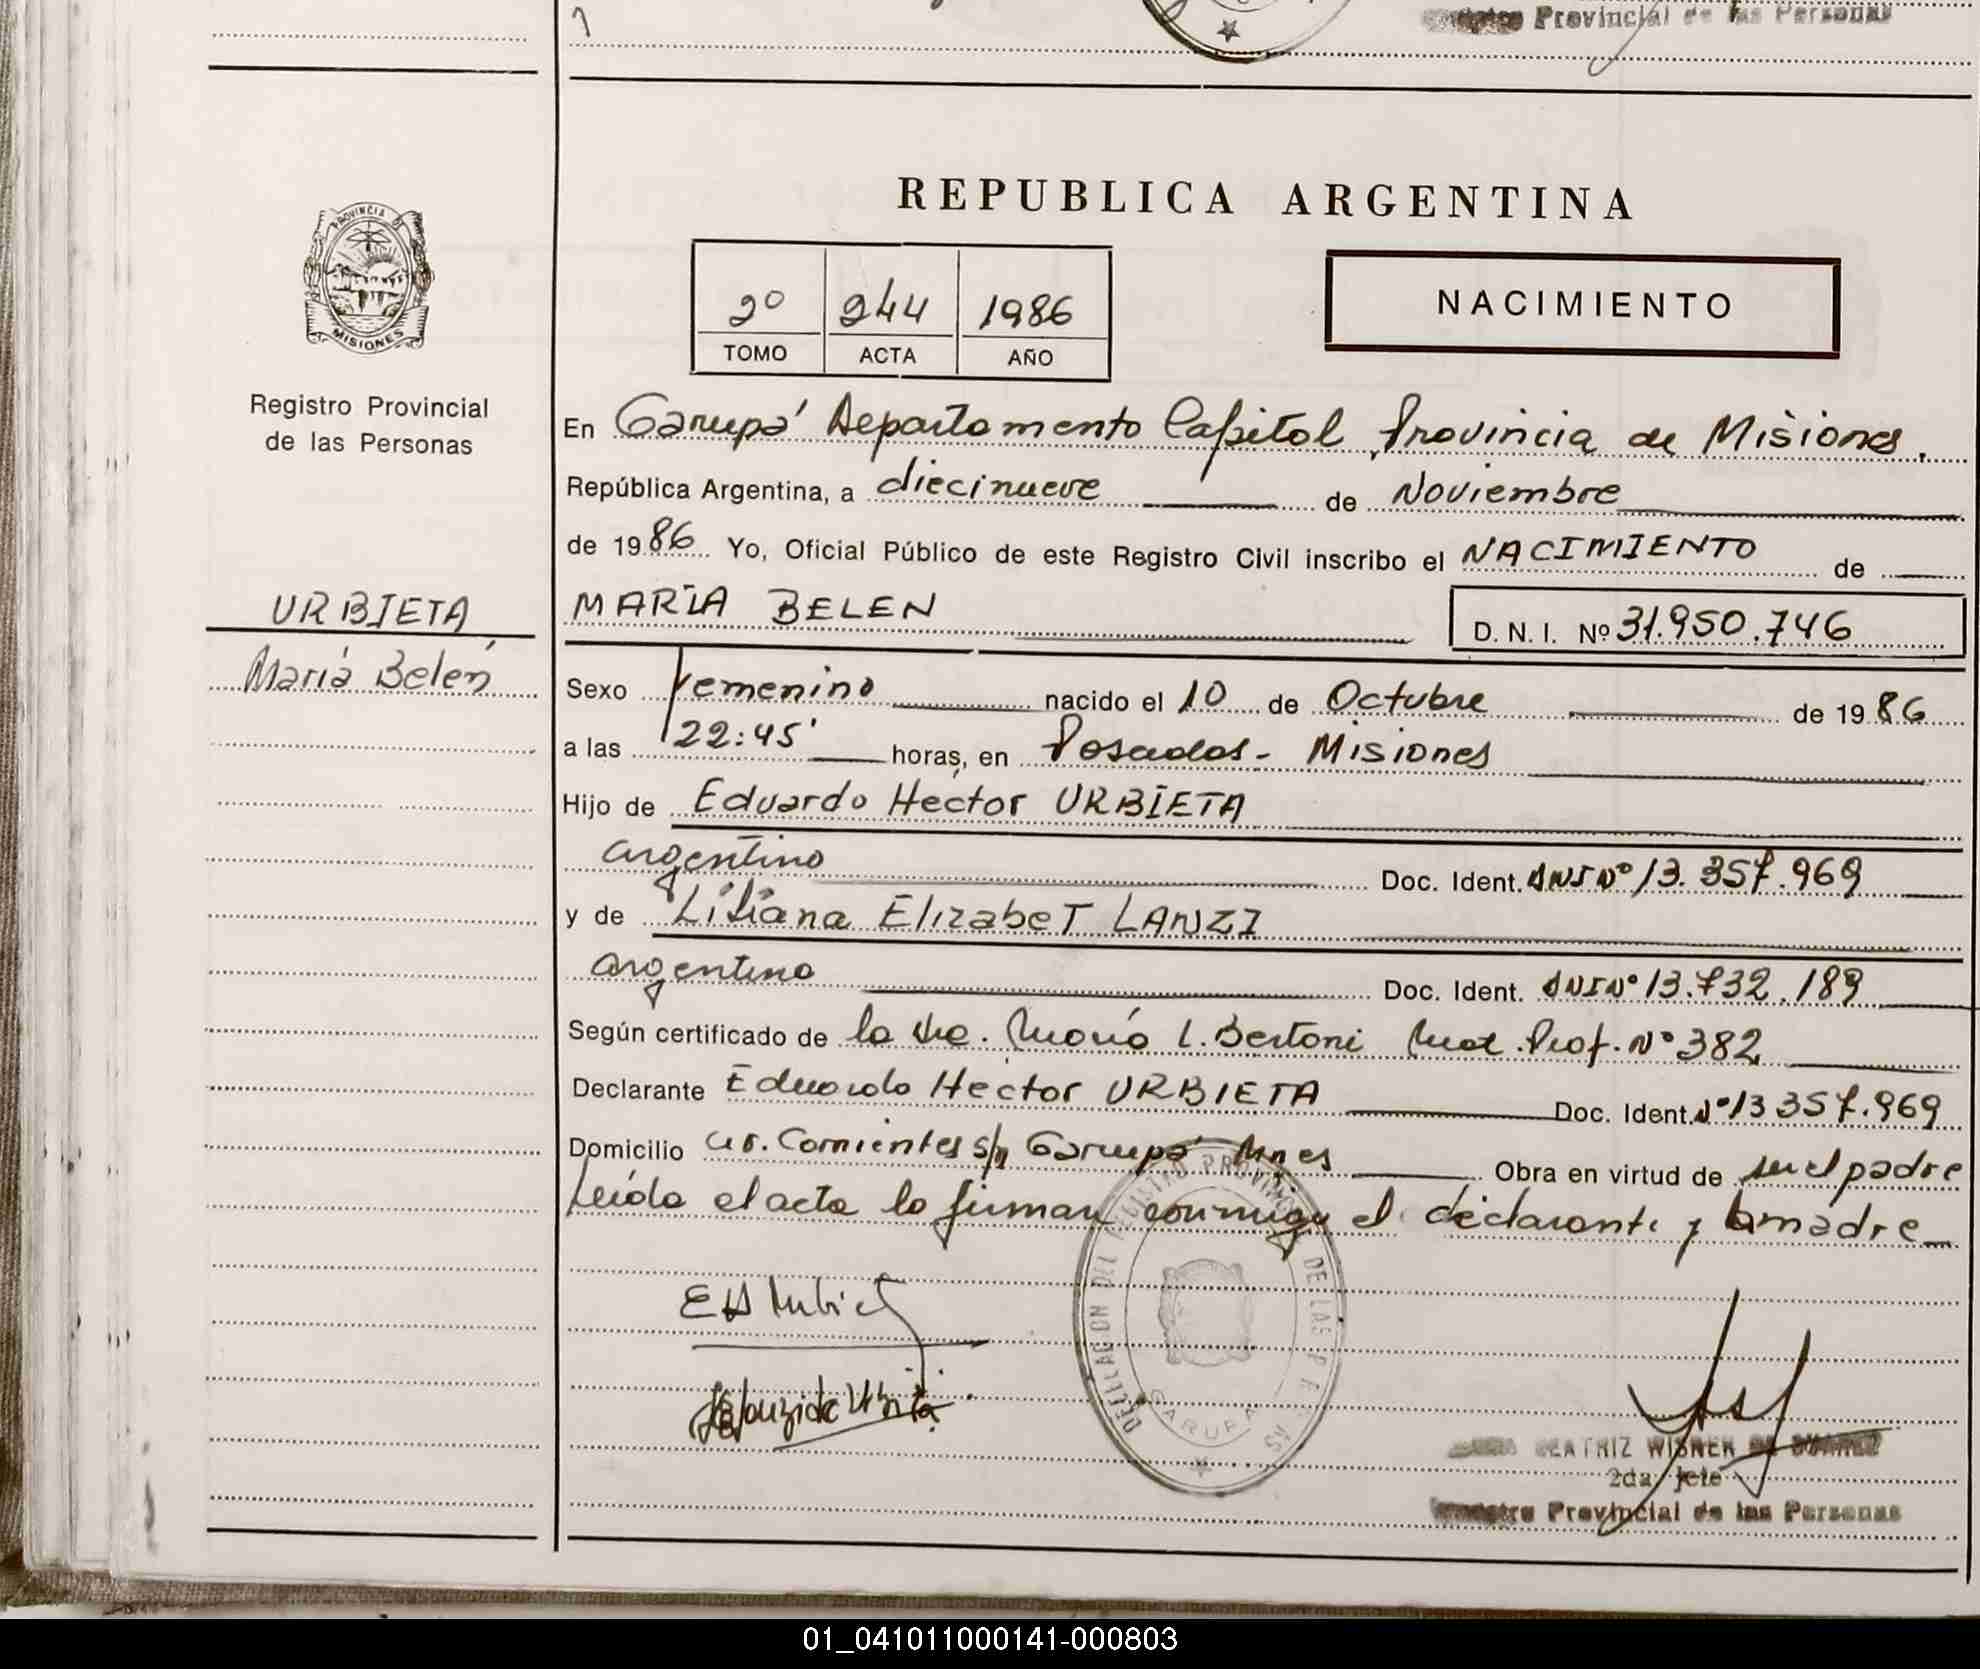 Provincial de las Personas
REPUBLICA ARGENTINA
PROVINCIA DE
MISIONES
2º 244 1986
TOMO ACTA AÑO
NACIMIENTO
Registro Provincial
de las Personas
En Garupá Departamento Capital Provincia de Misiones.
República Argentina, a diecinueve de Noviembre
de 1986 Yo, Oficial Público de este Registro Civil inscribo el NACIMIENTO de
URBIETA
MARIA BELEN D. N. I. Nº 31.950.746
María Belén
Sexo Femenino nacido el 10 de Octubre de 1986
a las 22:45' horas, en Posadas - Misiones
Hijo de Eduardo Héctor URBIETA
argentino Doc. Ident. DNI Nº 13.357.969
y de Liliana Elizabet LANZI
argentina Doc. Ident. DNI Nº 13.732.189
Según certificado de la Dra. María L. Bertoni Mat. Prof. Nº 382
Declarante Eduardo Hector URBIETA Doc. Ident. Nº 13357.969
Domicilio Av. Corrientes s/n Garupá Mnes Obra en virtud de ser el padre
Leída el acta la firman conmigo el declarante y la madre
DELEGACION DEL REGISTRO PROVINCIAL DE LAS PERSONAS
GARUPA
BEATRIZ WISNER DE SUAREZ
2da Jefe
Registro Provincial de las Personas
01_041011000141-000803